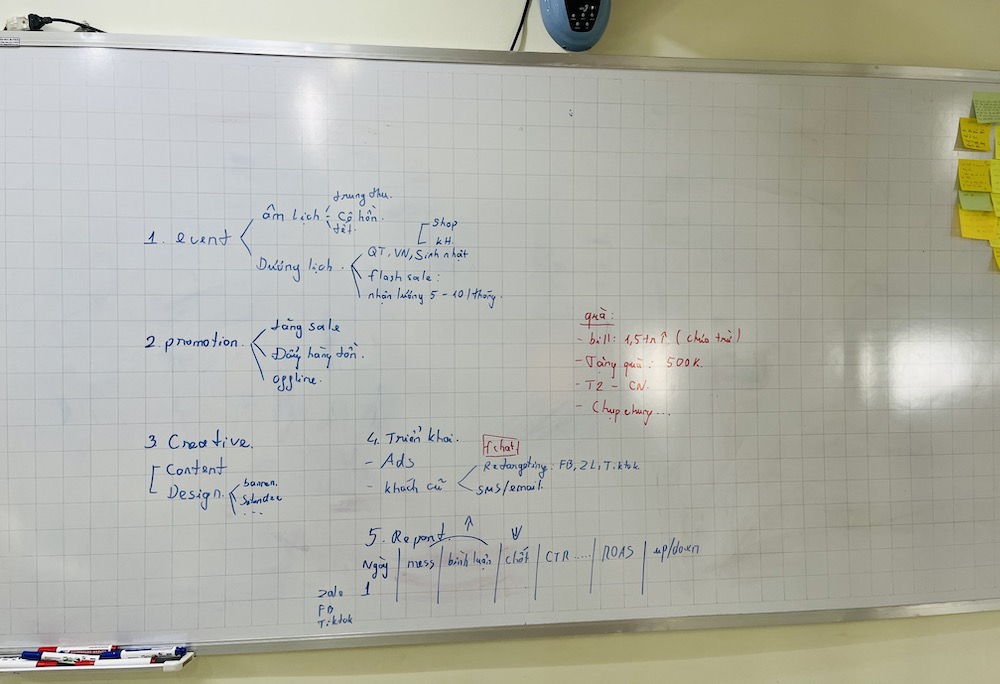 1. event
âm lịch
trung thu.
Cô hồn.
tết.
Dương lịch.
QT, VN, Sinh nhật
Shop
KH.
flash sale:
nhận lương 5 - 10/tháng.
2. promotion.
tăng sale
Đẩy hàng tồn.
offline.
quà:
- bill: 1,5tr↑ (chưa trừ)
- Tặng quà: 500k.
- T2 - CN.
- Chụp chung...
3. Creative.
Content
Design.
banner.
Standee
...
4. Triển khai.
- Ads
- khách cũ
fchat
Retargeting: FB, ZL, Tiktok.
SMS/email.
5. Report.
Ngày | mess | bình luận | chốt | CTR .... | ROAS | up/down
1
zalo
FB
Tiktok